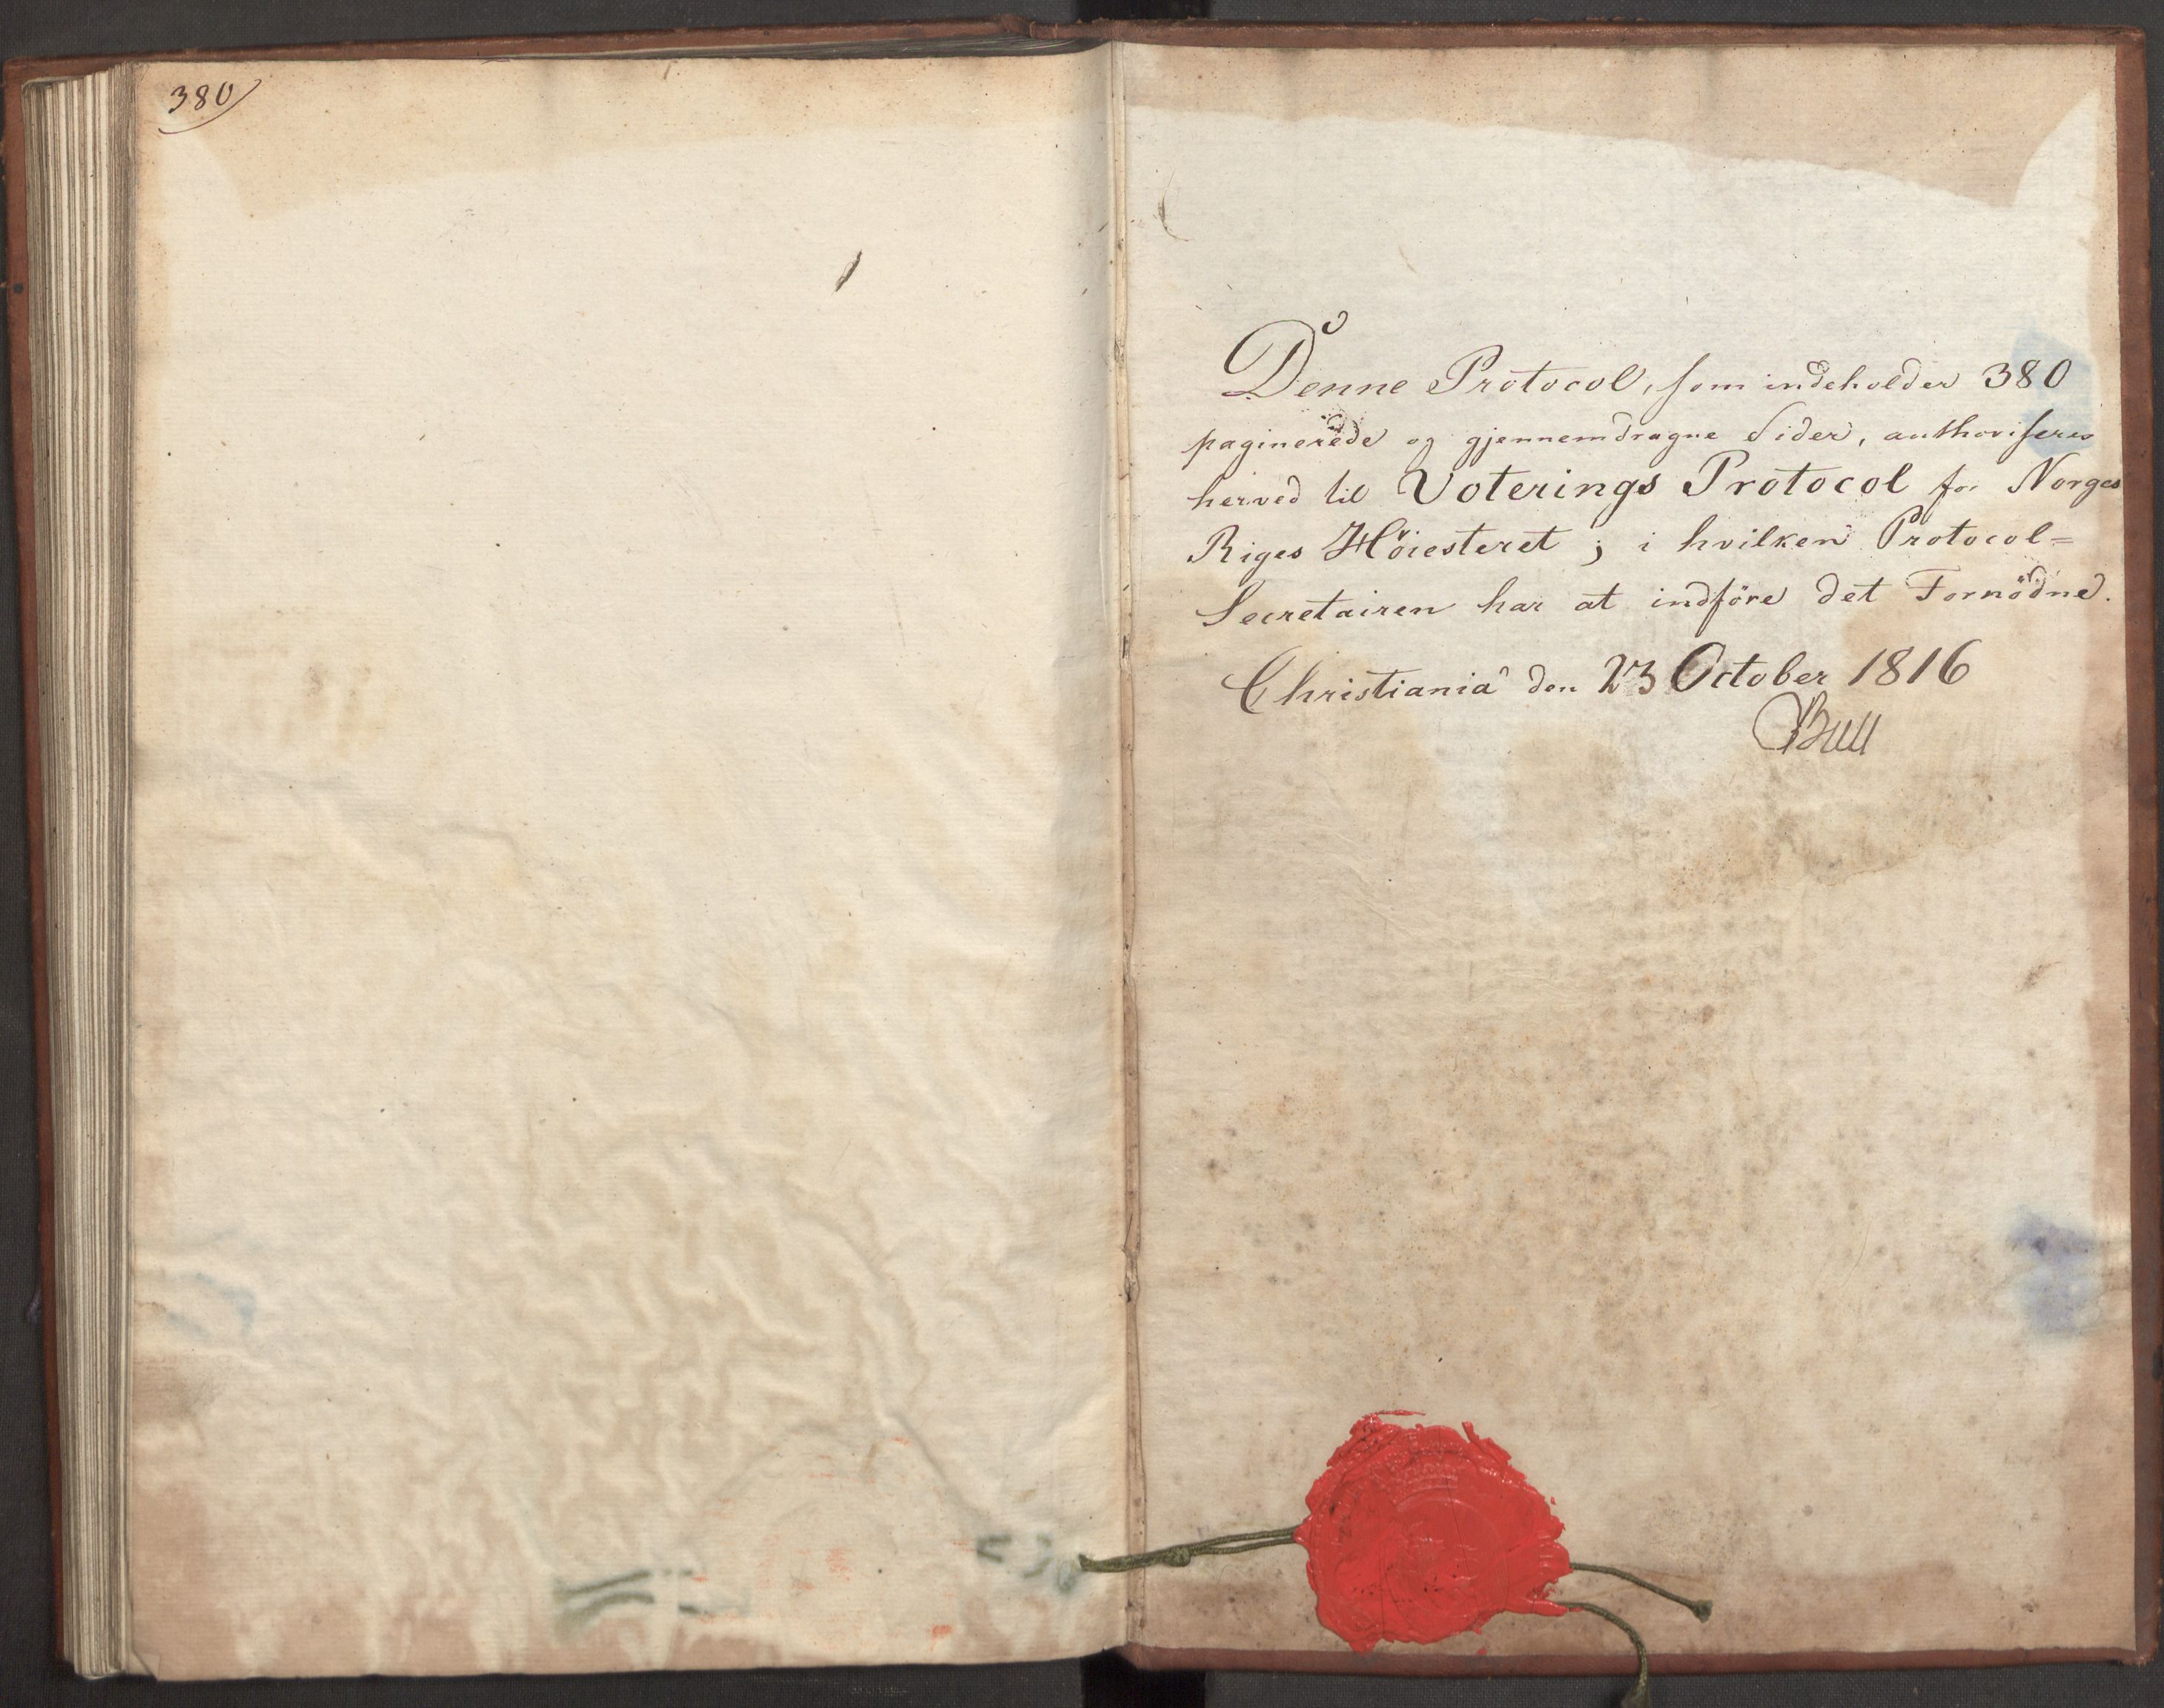 380
Denne Protocol, som indeholder 380
paginerede og gjennemdragne Sider, authoriseres
herved til Voterings Protocol for Norges
Riges Höiesteret ; i hvilken Protocol=
Secretairen har at indföre det Fornödne.
Christiania den 23 October 1816
Bull